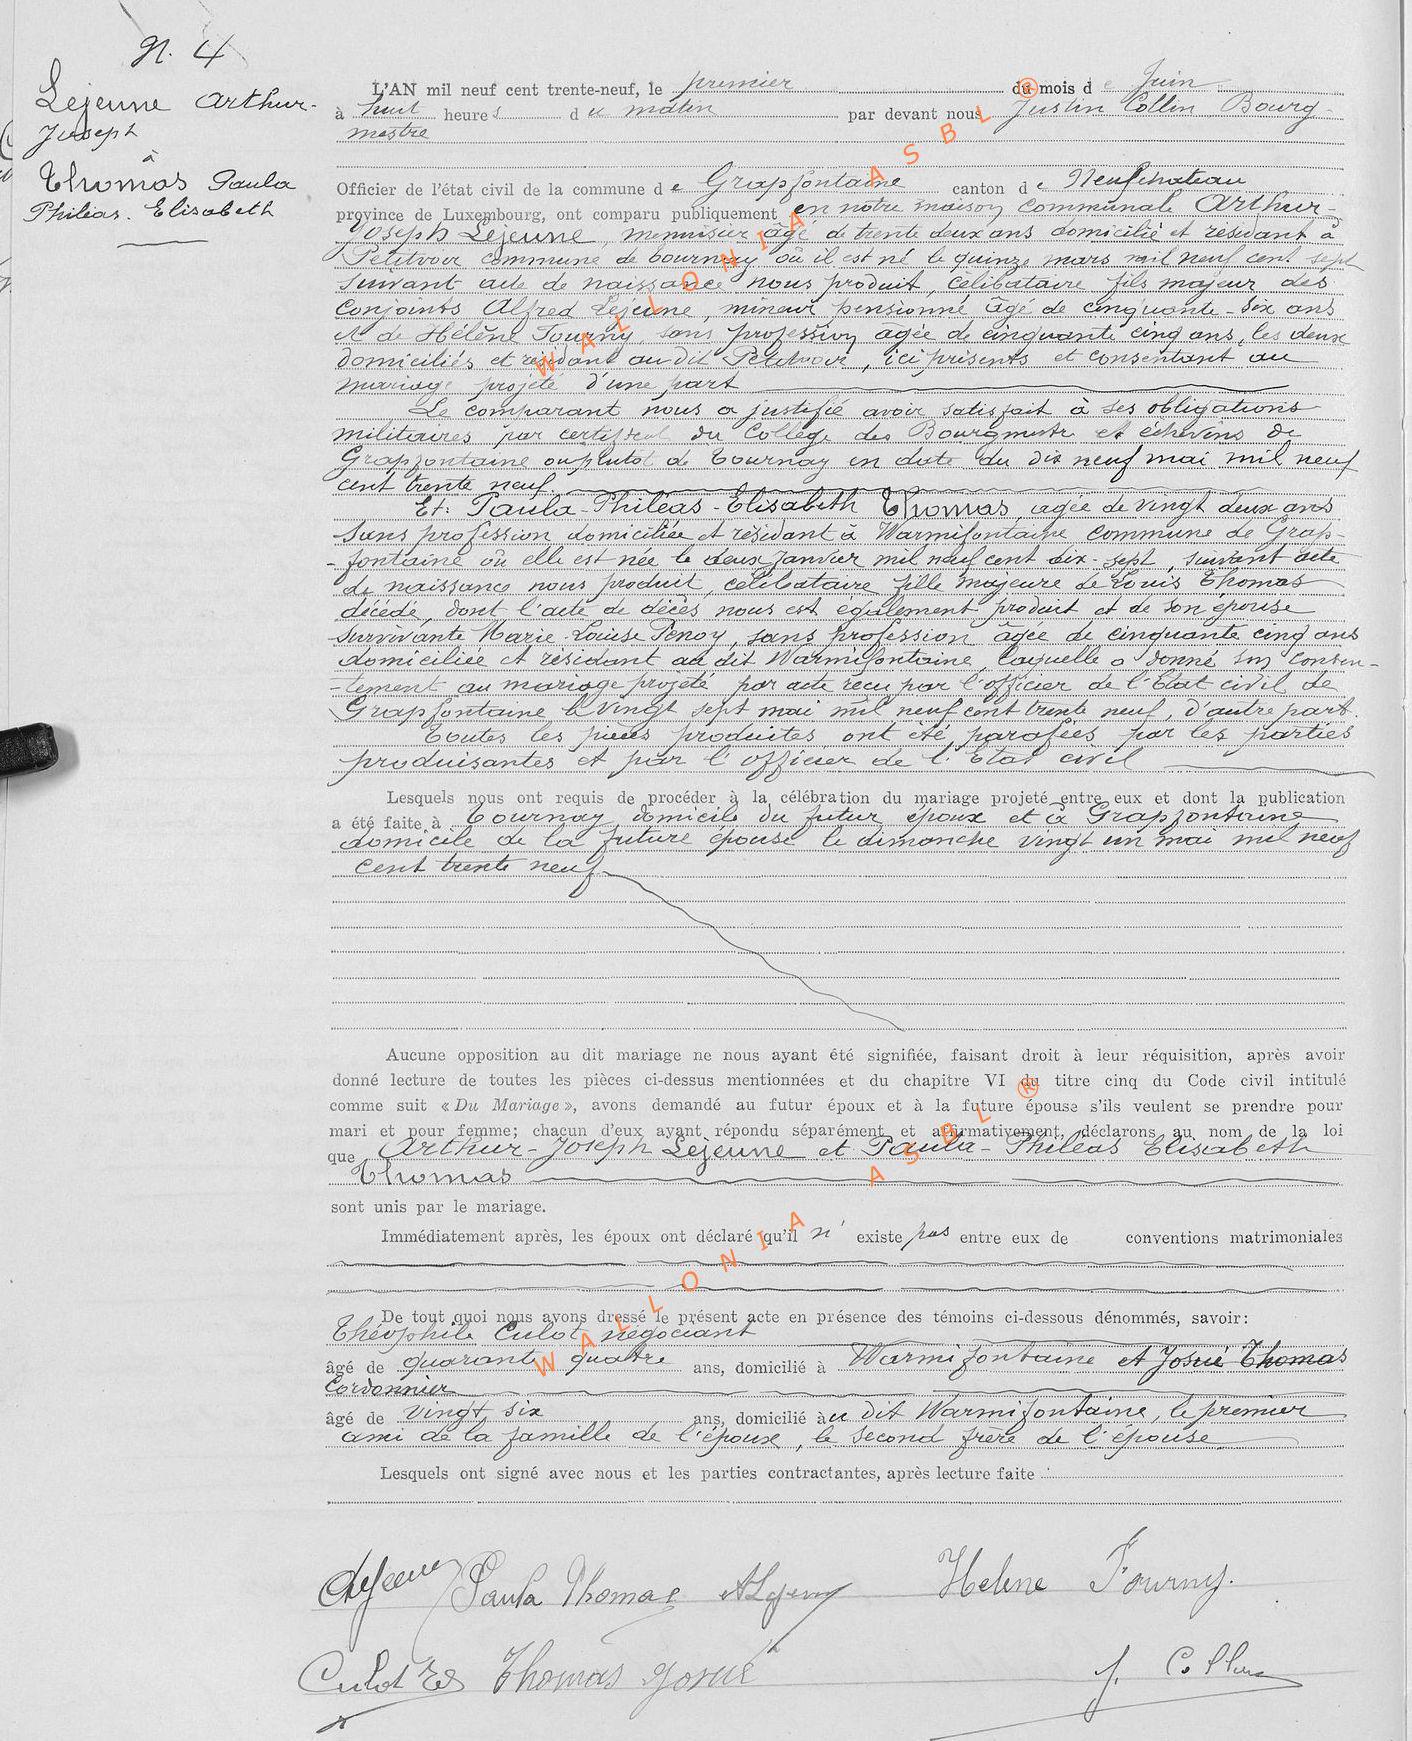 N. 4
Lejeune Arthur-
Joseph
à
Thomas Paula
Philéas. Elisabeth
L'AN mil neuf cent trente-neuf, le premier du mois de Juin
à huit heures du matin par devant nous Justin Collin Bourg-
mestre
Officier de l'état civil de la commune de Grapfontaine canton de Neufchateau
province de Luxembourg, ont comparu publiquement en notre maison communale Arthur-
Joseph Lejeune, menuisier âgé de trente deux ans domicilié et résidant à
Petitvoir commune de Tournay où il est né le quinze mars mil neuf cent sept
suivant acte de naissance nous produit, célibataire fils majeur des
conjoints Alfred Lejeune, mineur pensionné, âgé de cinquante-six ans
et de Hélène Fourny, sans profession âgée de cinquante cinq ans, les deux
domiciliés et résidant au dit Petitvoir, ici présents et consentant au
mariage projeté d'une part
Le comparant nous a justifié avoir satisfait à ses obligations
militaires par certificat du Collège des Bourgmestre et échevins de
Grapfontaine ou plutot de Tournay en date du dix neuf mai mil neuf
cent trente neuf
Et: Paula-Philéas-Elisabeth Thomas, agée de vingt deux ans
sans profession domiciliée et résidant à Warmifontaine commune de Grap-
-fontaine où elle est née le deux Janvier mil neuf cent dix-sept, suivant acte
de naissance nous produit, célibataire fille majeure de Louis Thomas
décédé, dont l'acte de décès nous est également produit et de son épouse
survivante Marie-Louise Penoy, sans profession âgée de cinquante cinq ans
domiciliée et résidant au dit Warmifontaine, laquelle a donné son consen-
-tement au mariage projeté par acte recu par l'officier de l'Etat civil de
Grapfontaine le vingt sept mai mil neuf cent trente neuf, d'autre part.
Toutes les pièces produites ont été parafées par les parties
produisantes et par l'officier de l'Etat civil
Lesquels nous ont requis de procéder à la célébration du mariage projeté entre eux et dont la publication
a été faite à Tournay domicile du futur époux et à Grapfontaine
domicile de la future épouse le dimanche vingt un mai mil neuf
cent trente neuf
Aucune opposition au dit mariage ne nous ayant été signifiée, faisant droit à leur réquisition, après avoir
donné lecture de toutes les pièces ci-dessus mentionnées et du chapitre VI du titre cinq du Code civil intitulé
comme suit « Du Mariage », avons demandé au futur époux et à la future épouse s'ils veulent se prendre pour
mari et pour femme; chacun d'eux ayant répondu séparément et affirmativement, déclarons au nom de la loi
que Arthur-Joseph Lejeune et Paula-Philéas Elisabeth
Thomas
sont unis par le mariage.
Immédiatement après, les époux ont déclaré qu'il n' existe pas entre eux de conventions matrimoniales
De tout quoi nous avons dressé le présent acte en présence des témoins ci-dessous dénommés, savoir:
Théophile Culot négociant
âgé de quarante quatre ans, domicilié à Warmifontaine et Josué Thomas
Cordonnier
âgé de vingt six ans, domicilié au dit Warmifontaine, le premier
ami de la famille de l'époux, le second frère de l'épouse
Lesquels ont signé avec nous et les parties contractantes, après lecture faite.
Lejeune Paula Thomas ALejeune Helene Fourny.
Culot Thomas Josué J. Collin
WALLONIA ASBL ®
WALLONIA ASBL ®